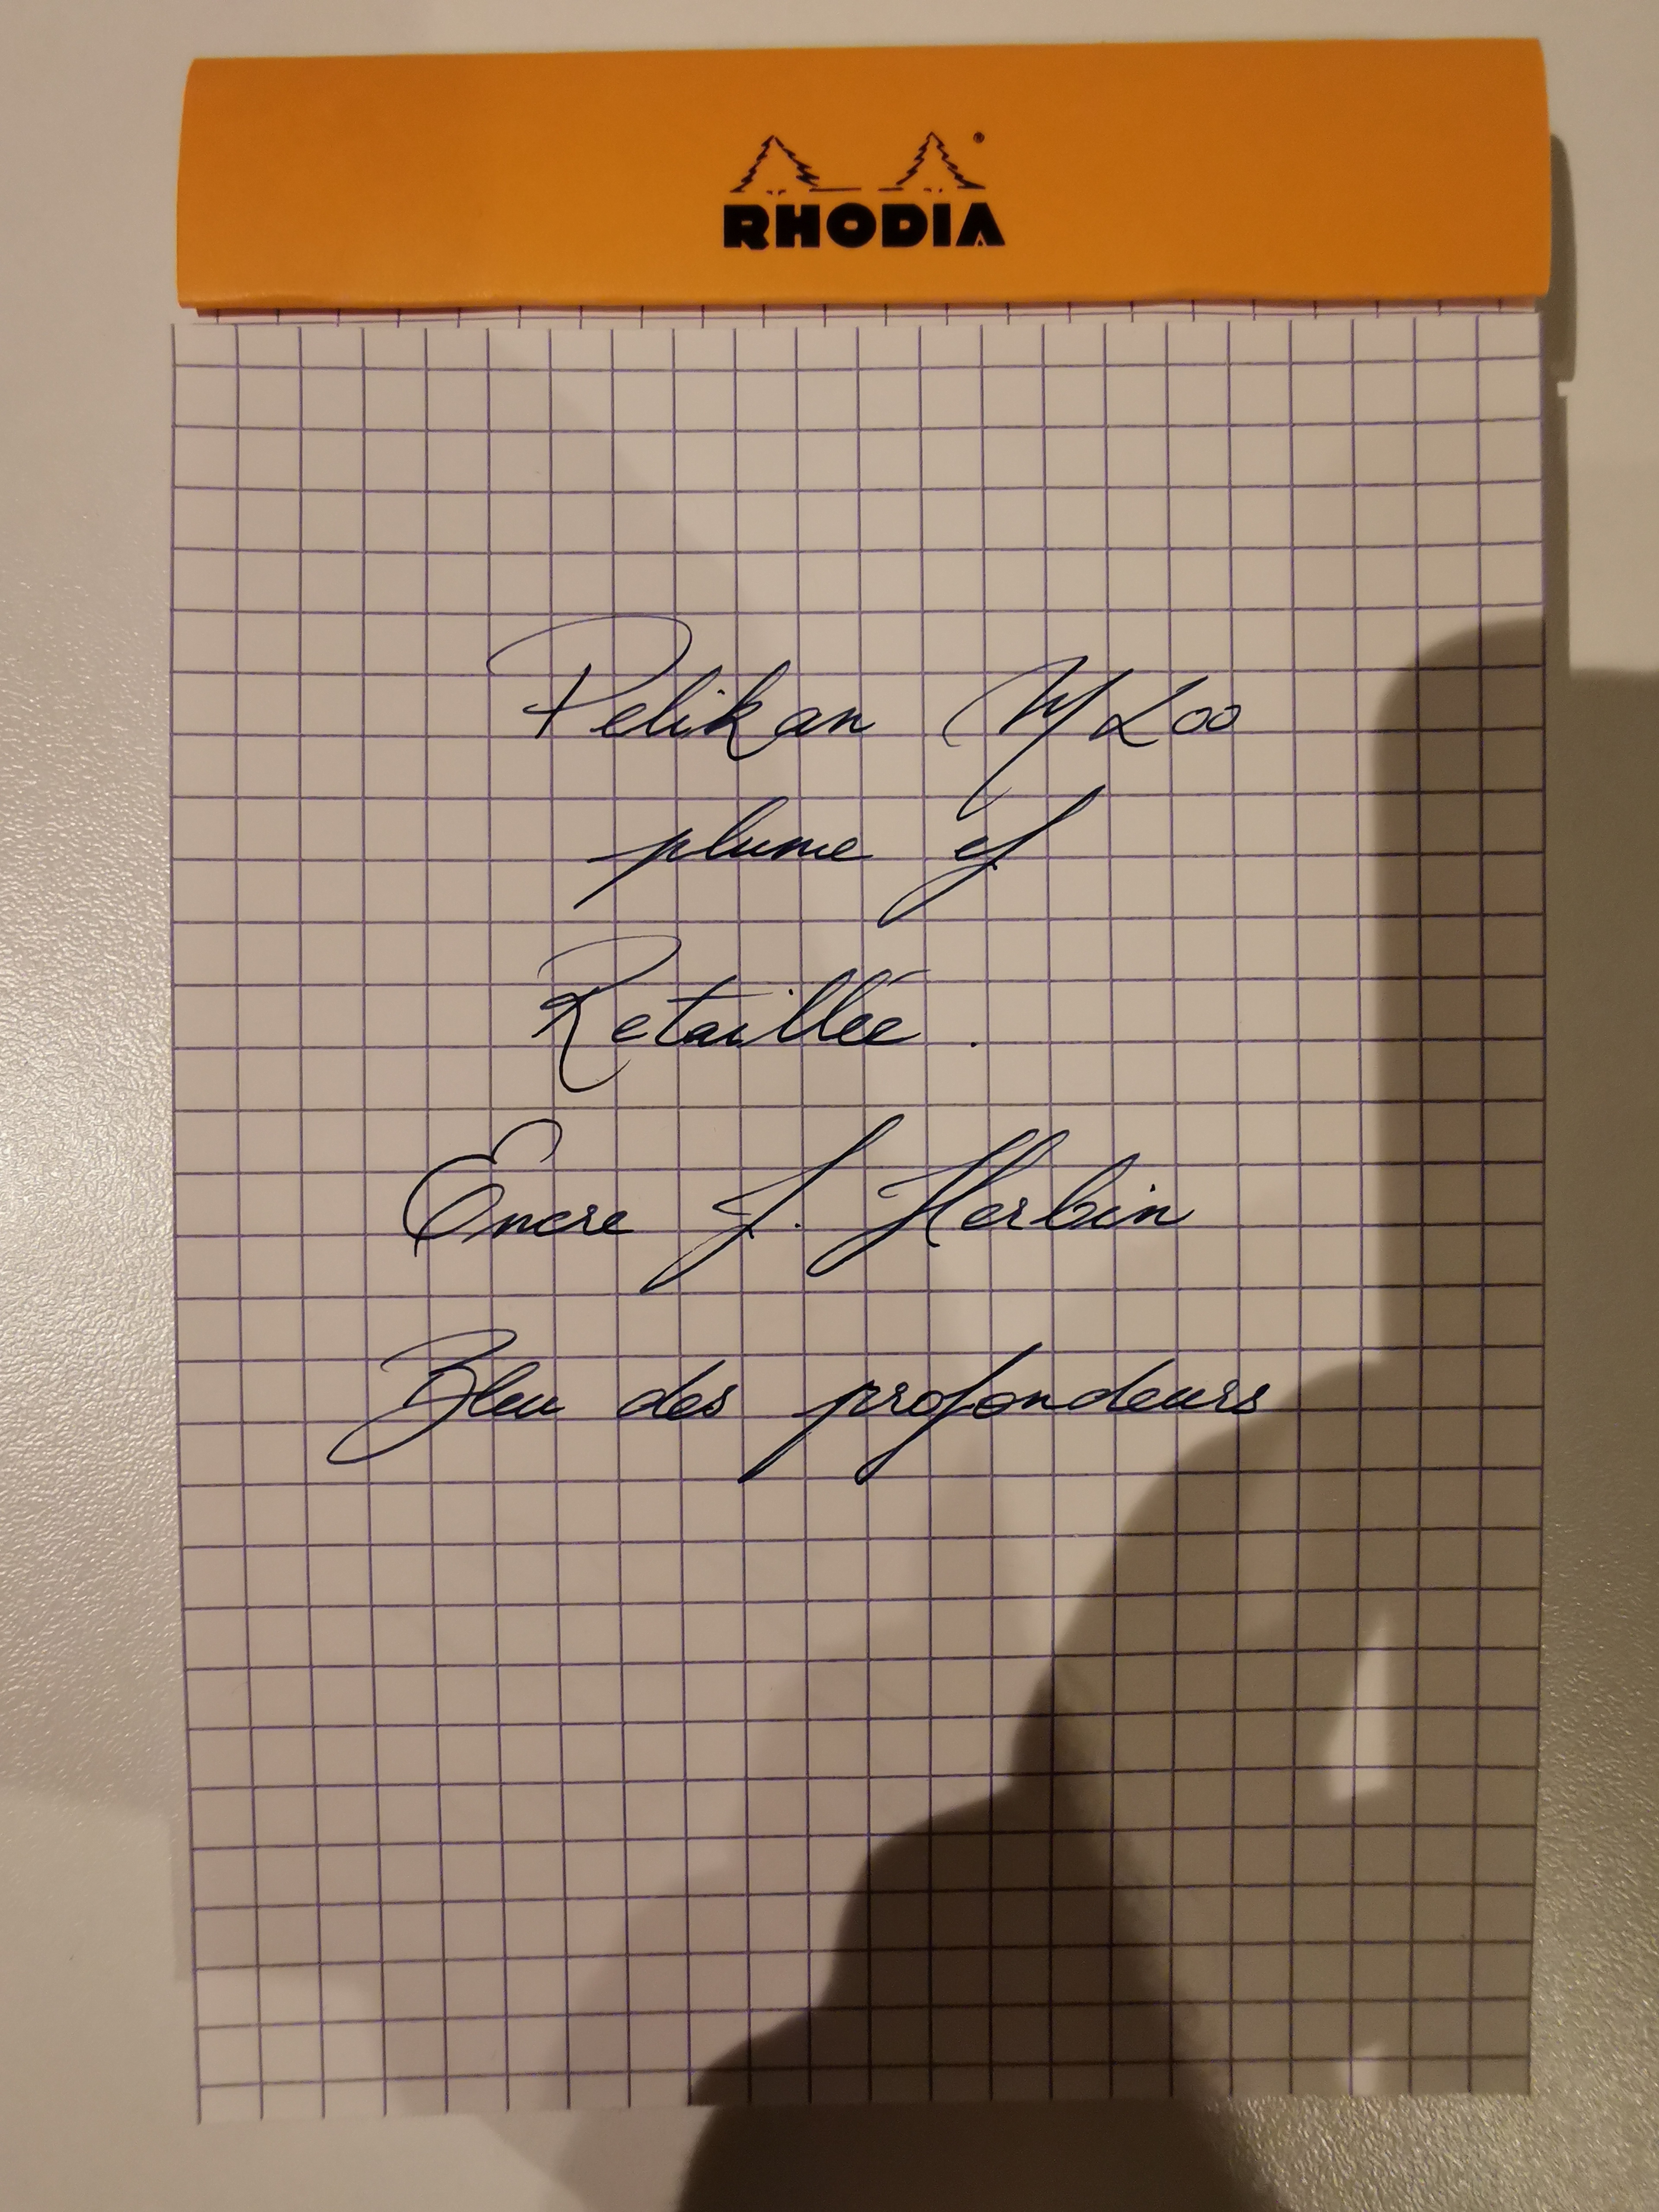 RHODIA
Pelikan M200
plume ef
Retaillée.
Encre J. Herbin
Bleu des profondeurs